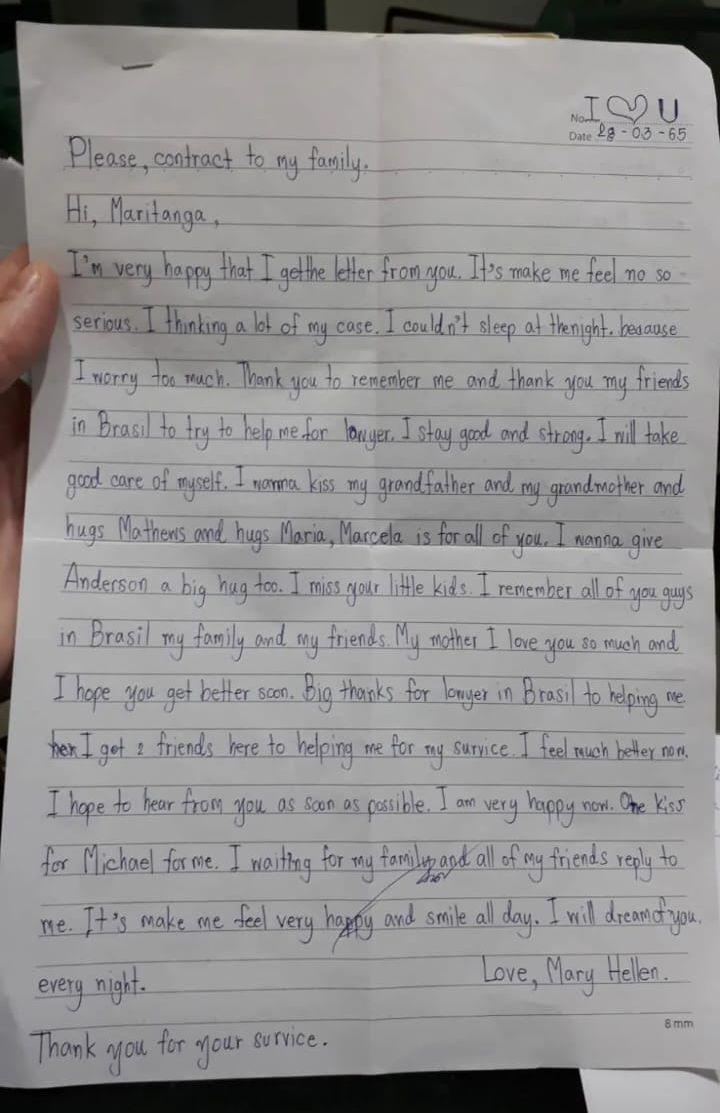 No. I ♡ U
Date 28-03-65
Please, contract to my family.
Hi, Maritanga,
I'm very happy that I getthe letter from you. It's make me feel no so
serious. I thinking a lot of my case. I couldn't sleep at thenight. because
I worry too much. Thank you to remember me and thank you my friends
in Brasil to try to help me for lawyer. I stay good and strong. I will take
good care of myself. I wanna kiss my grandfather and my grandmother and
hugs Mathews and hugs Maria, Marcela is for all of you. I wanna give
Anderson a big hug too. I miss your little kids. I remember all of you guys
in Brasil my family and my friends. My mother I love you so much and
I hope you get better soon. Big thanks for lowyer in Brasil to helping me.
I get 2 friends here to helping me for my survice. I feel much better now.
I hope to hear from you as soon as possible. I am very happy now. One kiss
for Michael for me. I waiting for my family and all of my friends reply to
me. It's make me feel very happy and smile all day. I will dream of you.
every night. Love, Mary Hellen.
8 mm
Thank you for your survice.